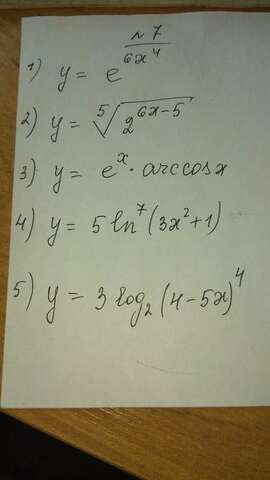 №7
1) y = e^{6x^4}
2) y = \sqrt[5]{2^{6x-5}}
3) y = e^x · arccosx
4) y = 5 ln^7 (3x^2+1)
5) y = 3 log_2 (4-5x)^4